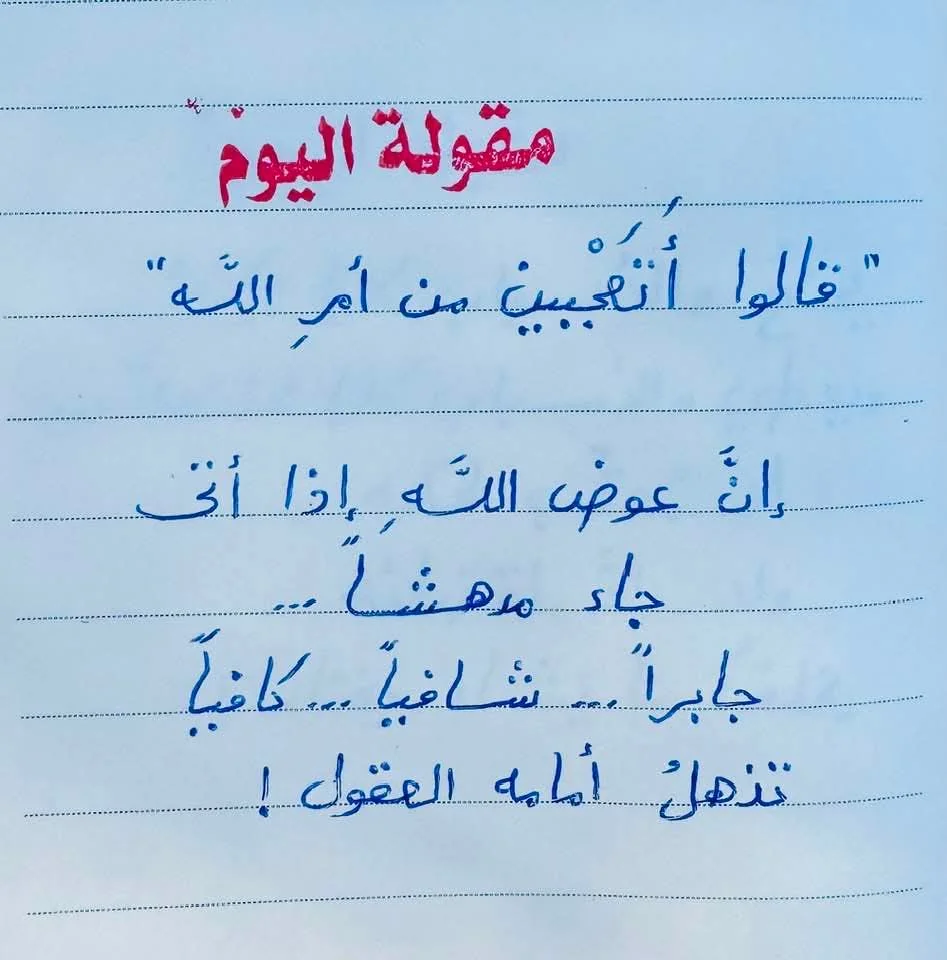 مقولة اليوم
"قالوا أَتَعْجَبين من أمرِ اللَّه"
إنَّ عوض اللَّهِ إذا أتى
جاء مدهشاً ...
جابراً ... شافياً ... كافياً
تذهلُ أمامه العقول !